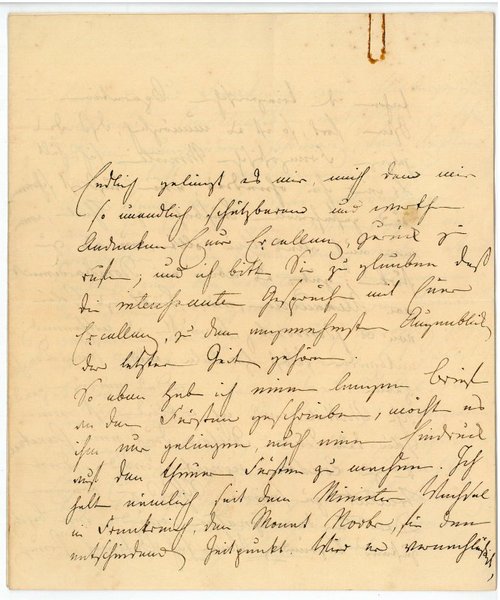 Endlich gelingt es mir, mich dem mir
so unendlich schätzbaren und werthen
Andenken Euer Excellenz, zurück zu
rufen, und ich bitte Sie zu glauben daß
die interessanten Gespräch mit Euer
Excellenz, zu den angenehmsten Augenblick
der letzten Zeit gehören.
So eben hab ich einen langen Brief
an den Fürsten geschrieben, möcht es
ihm nur gelingen, auch einen Eindruck
auf den theuren Fürsten zu machen. Ich
halte nämlich seit dem Minister Wechsel
in Frankreich, den Monat für den
entscheidend Zeitpunkt. Wird er vernachläßigt,